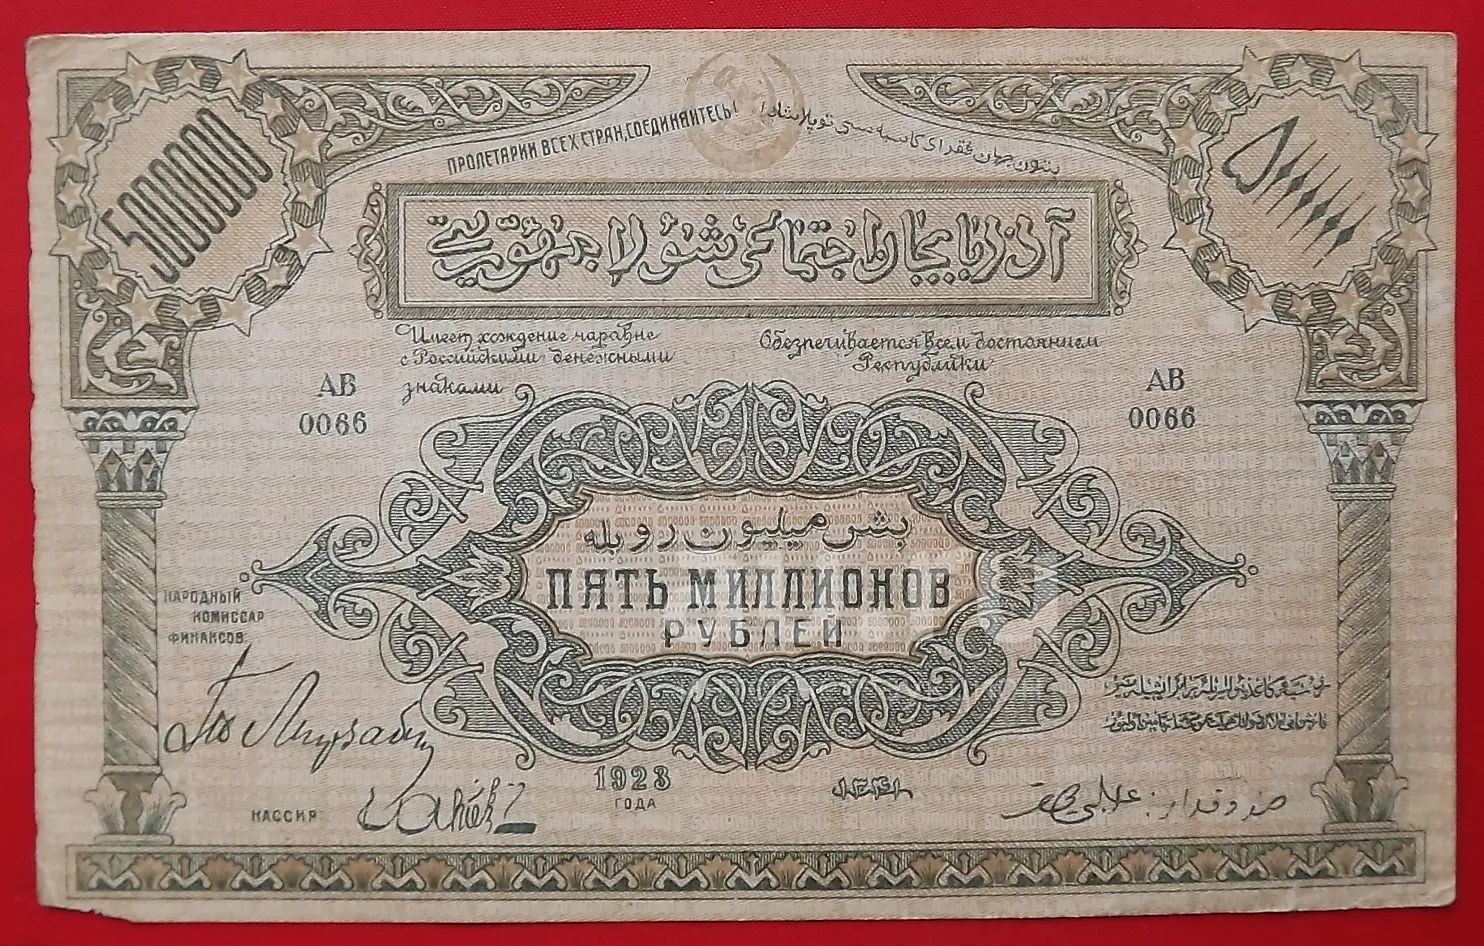 ПРОЛЕТАРИИ ВСЕХ СТРАН, СОЕДИНЯЙТЕСЬ!
بتون جهان فقرای کاسبه سی توپلاشکز!
5000000
۵۰۰۰۰۰۰
آذربایجان اجتماعی شورالار جمهوریتی
Имеет хождение наравне
с Российскими денежными
знаками
Обезпечивается всем достоянием
Республики
АВ
0066
АВ
0066
بش میلیون روبله
ПЯТЬ МИЛЛИОНОВ
РУБЛЕЙ
НАРОДНЫЙ
КОМИССАР
ФИНАНСОВ
1923
ГОДА
КАССИР
صندوقدار: